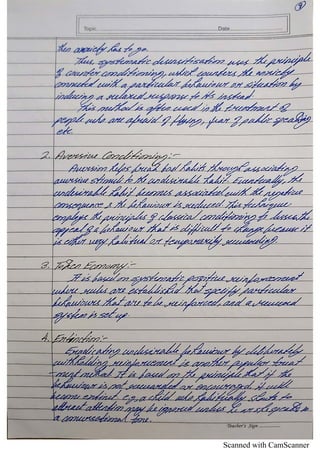 Topic
Date
then anxiety has to go.
Thus, systematic desensitization uses the principle
of counter conditioning, which counters the anxiety
connected with a particular behaviour or situation by
inducing a relaxed response to it instead.
This method is often used in the treatment of
people who are afraid of flying, fear of public speaking
etc.
2. Aversive Conditioning:-
Aversion helps break bad habits through associating
aversive stimuli to the undesirable habit. Eventually, the
undesirable habit becomes associated with the negative
consequence & the behaviour is reduced. This technique
employs the principles of classical conditioning to lessen the
appeal of a behaviour that is difficult to change because it
is either very habitual or temporarily rewarding.
3. Token Economy:-
It is based on systematic positive reinforcement
where rules are established that specify particular
behaviours that are to be reinforced, and a reward
system is set up.
4. Extinction:-
Eradicating undesirable behaviour by deliberately
withholding reinforcement is another popular treat
-ment method. It is based on the principle that if the
behaviour is not rewarded or encouraged it will
become extinct. e.g. a child who habitually shouts to
attract attention may be ignored unless he or she speaks in
a conversational tone.
Teacher's Sign
Scanned with CamScanner